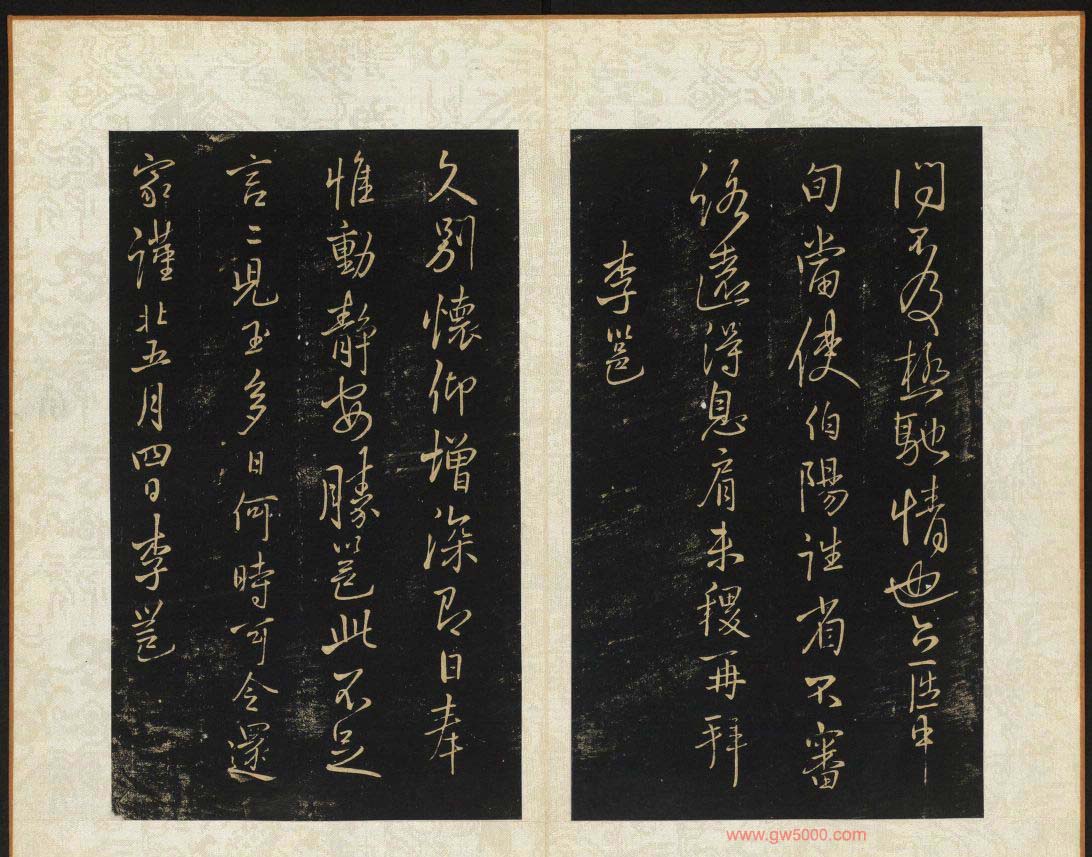 問不及極馳情也亡匠中
旬當使伯陽往省不審
從遠得息肩未稷再拜
李邕
久別懷仰增深即日奉
惟動靜安勝邕此不足
言言見玉多日何時可令還
家謹北五月四日李邕
www.gw5000.com